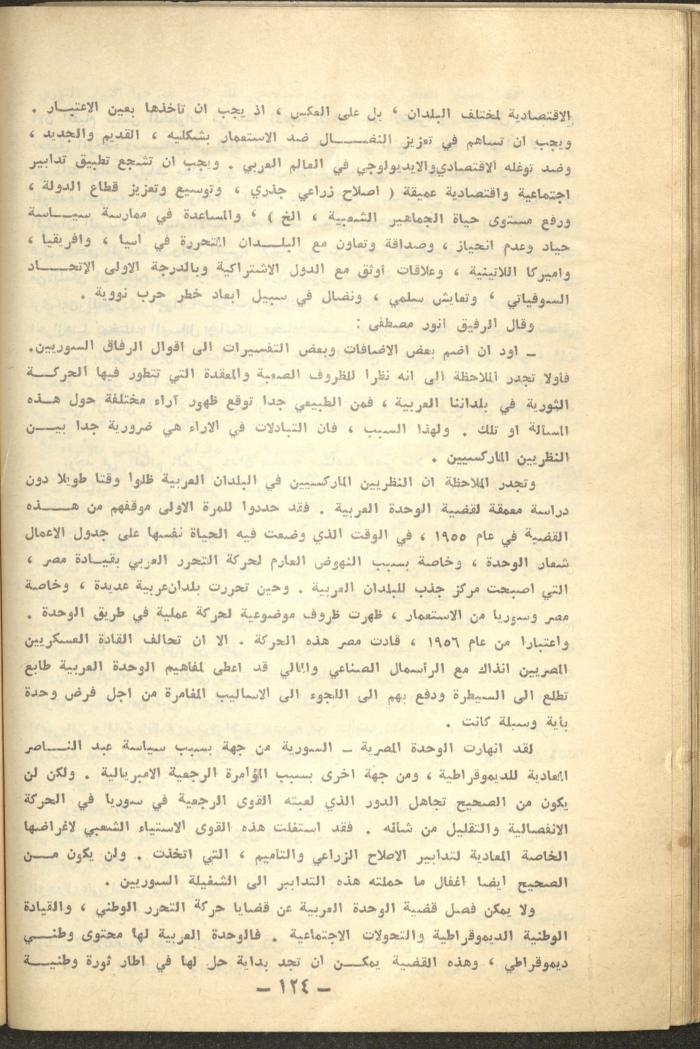 الاقتصادية لمختلف البلدان ، بل على العكس ، اذ يجب ان تأخذها بعين الاعتبار .
ويجب ان تساهم في تعزيز النضال ضد الاستعمار بشكليه ، القديم والجديد ،
وضد توغله الاقتصادي والايديولوجي في العالم العربي . ويجب ان تشجع تطبيق تدابير
اجتماعية واقتصادية عميقة ( اصلاح زراعي جذري ، وتوسيع وتعزيز قطاع الدولة ،
ورفع مستوى حياة الجماهير الشعبية ، الخ ) ، والمساعدة في ممارسة سياسة
حياد وعدم انحياز ، وصداقة وتعاون مع البلدان المتحررة في آسيا ، وافريقيا ،
واميركا اللاتينية ، وعلاقات اوثق مع الدول الاشتراكية وبالدرجة الاولى الاتحاد
السوفياتي ، وتعايش سلمي ، ونضال في سبيل ابعاد خطر حرب نووية .
وقال الرفيق انور مصطفى :
ـ اود ان اضم بعض الاضافات وبعض التفسيرات الى اقوال الرفاق السوريين.
فأولا تجدر الملاحظة الى انه نظرا للظروف الصعبة والمعقدة التي تتطور فيها الحركة
الثورية في بلداننا العربية ، فمن الطبيعي جدا توقع ظهور آراء مختلفة حول هذه
المسالة او تلك . ولهذا السبب ، فان التبادلات في الاراء هي ضرورية جدا بين
النظريين الماركسيين .
وتجدر الملاحظة ان النظريين الماركسيين في البلدان العربية ظلوا وقتا طويلا دون
دراسة معمقة لقضية الوحدة العربية . فقد حددوا للمرة الاولى موقفهم من هذه
القضية في عام ١٩٥٥ ، في الوقت الذي وضعت فيه الحياة نفسها على جدول الاعمال
شعار الوحدة ، وخاصة بسبب النهوض العارم لحركة التحرر العربي بقيادة مصر ،
التي اصبحت مركز جذب للبلدان العربية . وحين تحررت بلدان عربية عديدة ، وخاصة
مصر وسوريا من الاستعمار ، ظهرت ظروف موضوعية لحركة عملية في طريق الوحدة .
واعتبارا من عام ١٩٥٦ ، قادت مصر هذه الحركة . الا ان تحالف القادة العسكريين
المصريين انذاك مع الرأسمال الصناعي والمالي قد اعطى لمفاهيم الوحدة العربية طابع
تطلع الى السيطرة ودفع بهم الى اللجوء الى الاساليب المغامرة من اجل فرض وحدة
بأية وسيلة كانت .
لقد انهارت الوحدة المصرية ـ السورية من جهة بسبب سياسة عبد الناصر
المعادية للديموقراطية ، ومن جهة اخرى بسبب المؤامرة الرجعية الامبريالية . ولكن لن
يكون من الصحيح تجاهل الدور الذي لعبته القوى الرجعية في سوريا في الحركة
الانفصالية والتقليل من شأنه . فقد استغلت هذه القوى الاستياء الشعبي لاغراضها
الخاصة المعادية لتدابير الاصلاح الزراعي والتأميم ، التي اتخذت . ولن يكون من
الصحيح ايضا اغفال ما حملته هذه التدابير الى الشغيلة السوريين .
ولا يمكن فصل قضية الوحدة العربية عن قضايا حركة التحرر الوطني ، والقيادة
الوطنية الديموقراطية والتحولات الاجتماعية . فالوحدة العربية لها محتوى وطني
ديموقراطي ، وهذه القضية يمكن ان تجد بداية حل لها في اطار ثورة وطنية
ـ ١٢٤ ـ